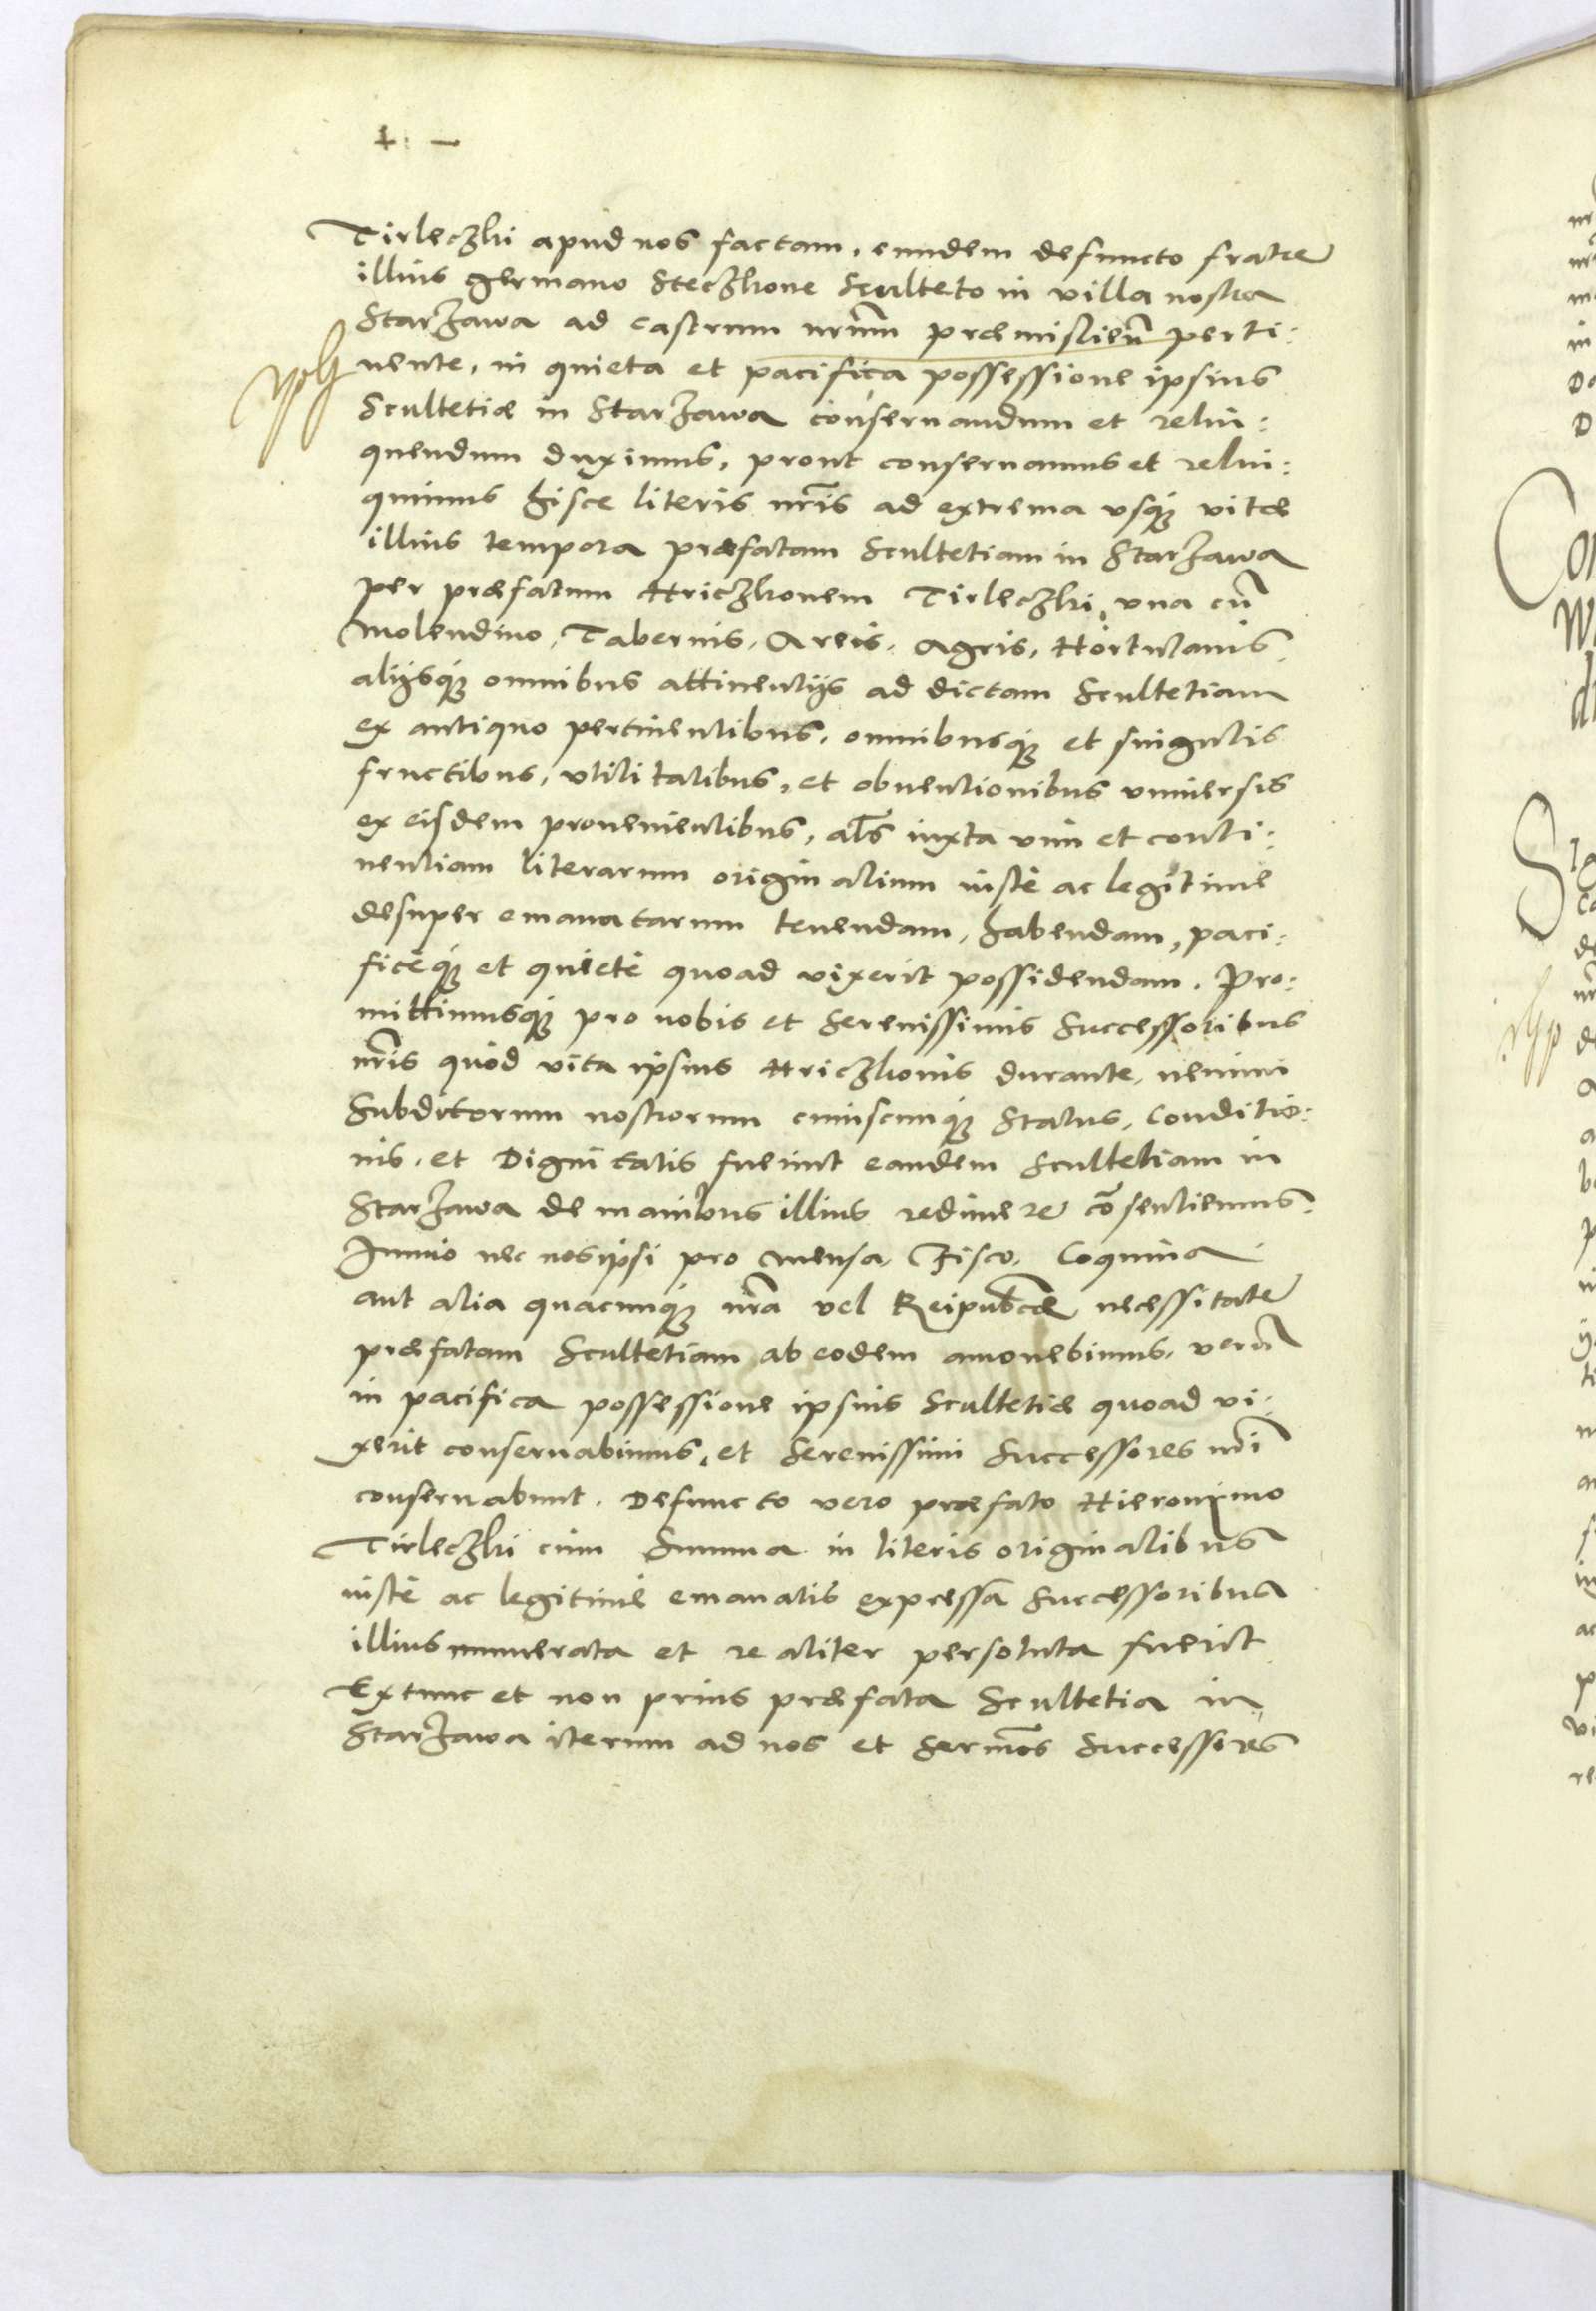 Tirleczki apud nos factam, eundem defuncto fratre
illius germano Steczkone Sculteto in villa nostra
Starzawa ad castrum nrūm præmislieñ perti:
nente, in quieta et pacifica possessione ipsius
Scultetiæ in Starzawa conseruandum et relin:
quendum duximus, prout conseruamus et relin:
quimus hisce literis nrīs ad extrema vsq̃ vitæ
illius tempora præfatam Scultetiam in Starzawa
per præfatum Hriczkonem Tirleczki, vna cū
Molendino, Tabernis, Areis, Agris, Hortulanis,
alijsq̃ omnibus attinentijs ad dictam Scultetiam
ex antiquo pertinentibus, omnibusq̃ et singulis
fructibus, vtilitatibus, et obuentionibus vniuersis
ex eisdem prouenientibus, alŝ iuxta vim et conti:
nentiam literarum originalium iustè ac legitime
desuper emanatarum tenendam, habendam, paci:
ficèq̃ et quietè quoad vixerit possidendam. Pro:
mittimusq̃ pro nobis et Serenissimis Successoribus
nrīs quòd vita ipsius Hriczkonis durante, nemini
Subditorum nostrorum cuiuscunq̃ Status, Conditio:
nis, et Dignitatis fuerint eandem Scultetiam in
Starzawa de manibus illius redimere cōsentiemus.
Immo nec nos ipsi pro Mensa, Fisco, Coquina
aut alia quacunq̃ nrā vel Reipub̄cæ necessitate
præfatam Scultetiam ab eodem amouebimus, verū
in pacifica possessione ipsius Scultetiæ quoad vi:
xerit conseruabimus, et Serenissimi Successores nrī
conseruabunt. Defuncto vero præfato Hieronimo
Tirleczki cùm Summa in literis originalibus
iustè ac legitimè emanatis expressa Successoribus
illius numerata et realiter persoluta fuerit
Extunc et non prius præfata Scultetia in
Starzawa iterum ad nos et Sermōs Successores